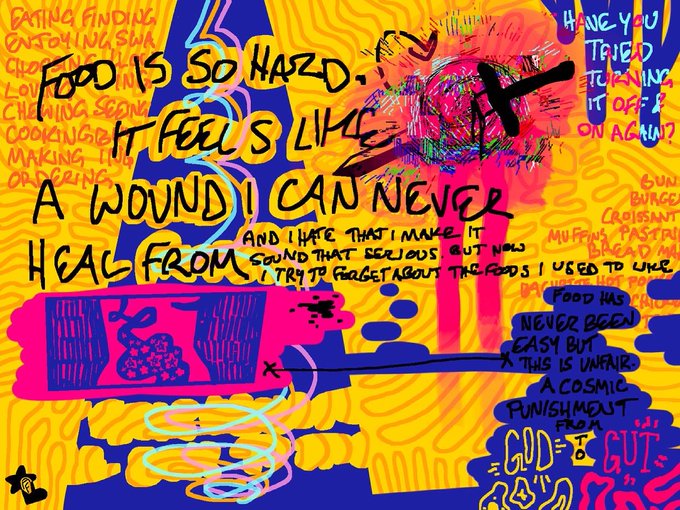 EATING FINDING
ENJOYING SWA
LOV
CHEWING SEEING
COOKING B
MAKING ING
ORDERING
FOOD IS SO HARD.
IT FEELS LIKE
A WOUND I CAN NEVER
HEAL FROM
AND I HATE THAT I MAKE IT
SOUND THAT SERIOUS. BUT NOW
I TRY TO FORGET ABOUT THE FOODS I USED TO LIKE
HAVE YOU
TRIED
TURNING
IT OFF &
ON AGAIN?
BUN
BURGE
CROISSANT
MUFFINS PASTRI
BREAD
HOT PO
FOOD HAS
NEVER BEEN
EASY BUT
THIS IS UNFAIR.
A COSMIC
PUNISHMENT
FROM
GOD TO GUT